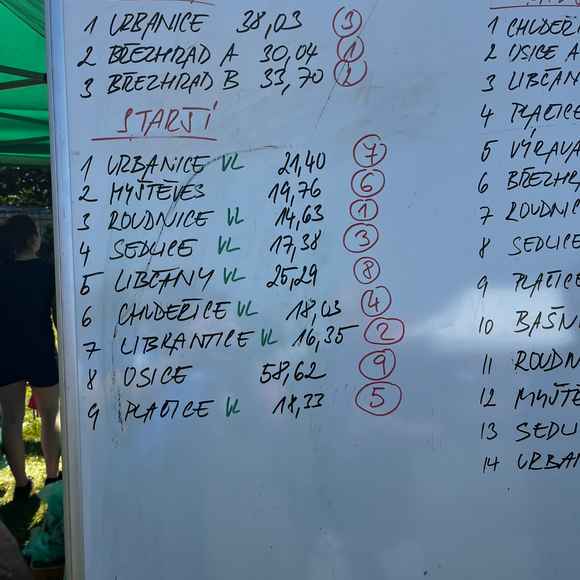 1 URBANICE 38,03 3
2 BŘEZHRAD A 30,04 1
3 BŘEZHRAD B 33,70 2
STARŠÍ
1 URBANICE VL 21,40 7
2 MYŠTĚVES 19,76 6
3 ROUDNICE VL 14,63 1
4 SEDLICE VL 17,38 3
5 LIBČANY VL 25,29 8
6 CHUDEŘICE VL 18,03 4
7 LIBRANTICE VL 16,35 2
8 OSICE 58,62 9
9 PLAČICE VL 18,33 5
1 CHUDEŘ
2 OSICE A
3 LIBČAN
4 PLAČICE
5 VÝRAVA
6 BŘEZHR
7 ROUDNIC
8 SEDLIC
9 PLAČICE
10 BAŠN
11 ROUDN
12 MYŠTĚ
13 SEDLI
14 URBAN